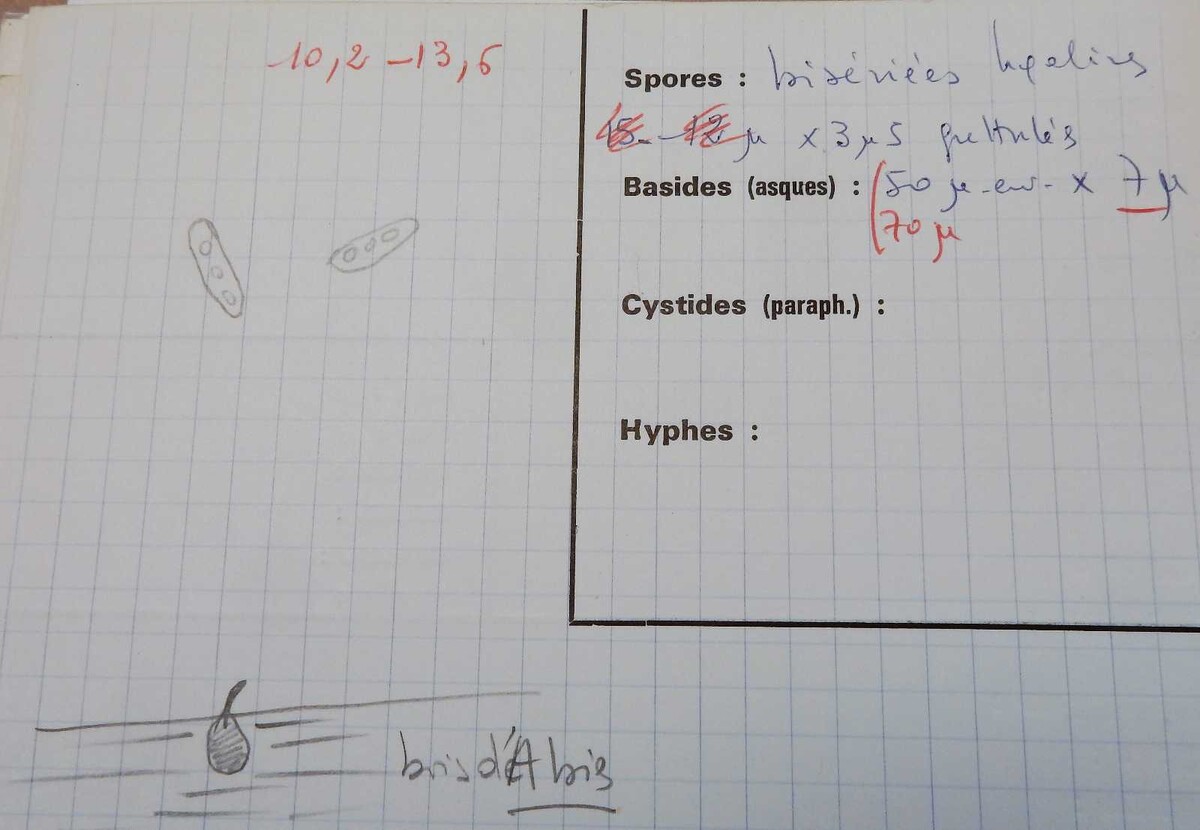 10,2 – 13,6
Spores : bisériées hyalines
15 – 12 µ x 3 µ 5 guttulés
Basides (asques) : (50 µ env. x 7 µ
70 µ
Cystides (paraph.) :
Hyphes :
bois d'Abies